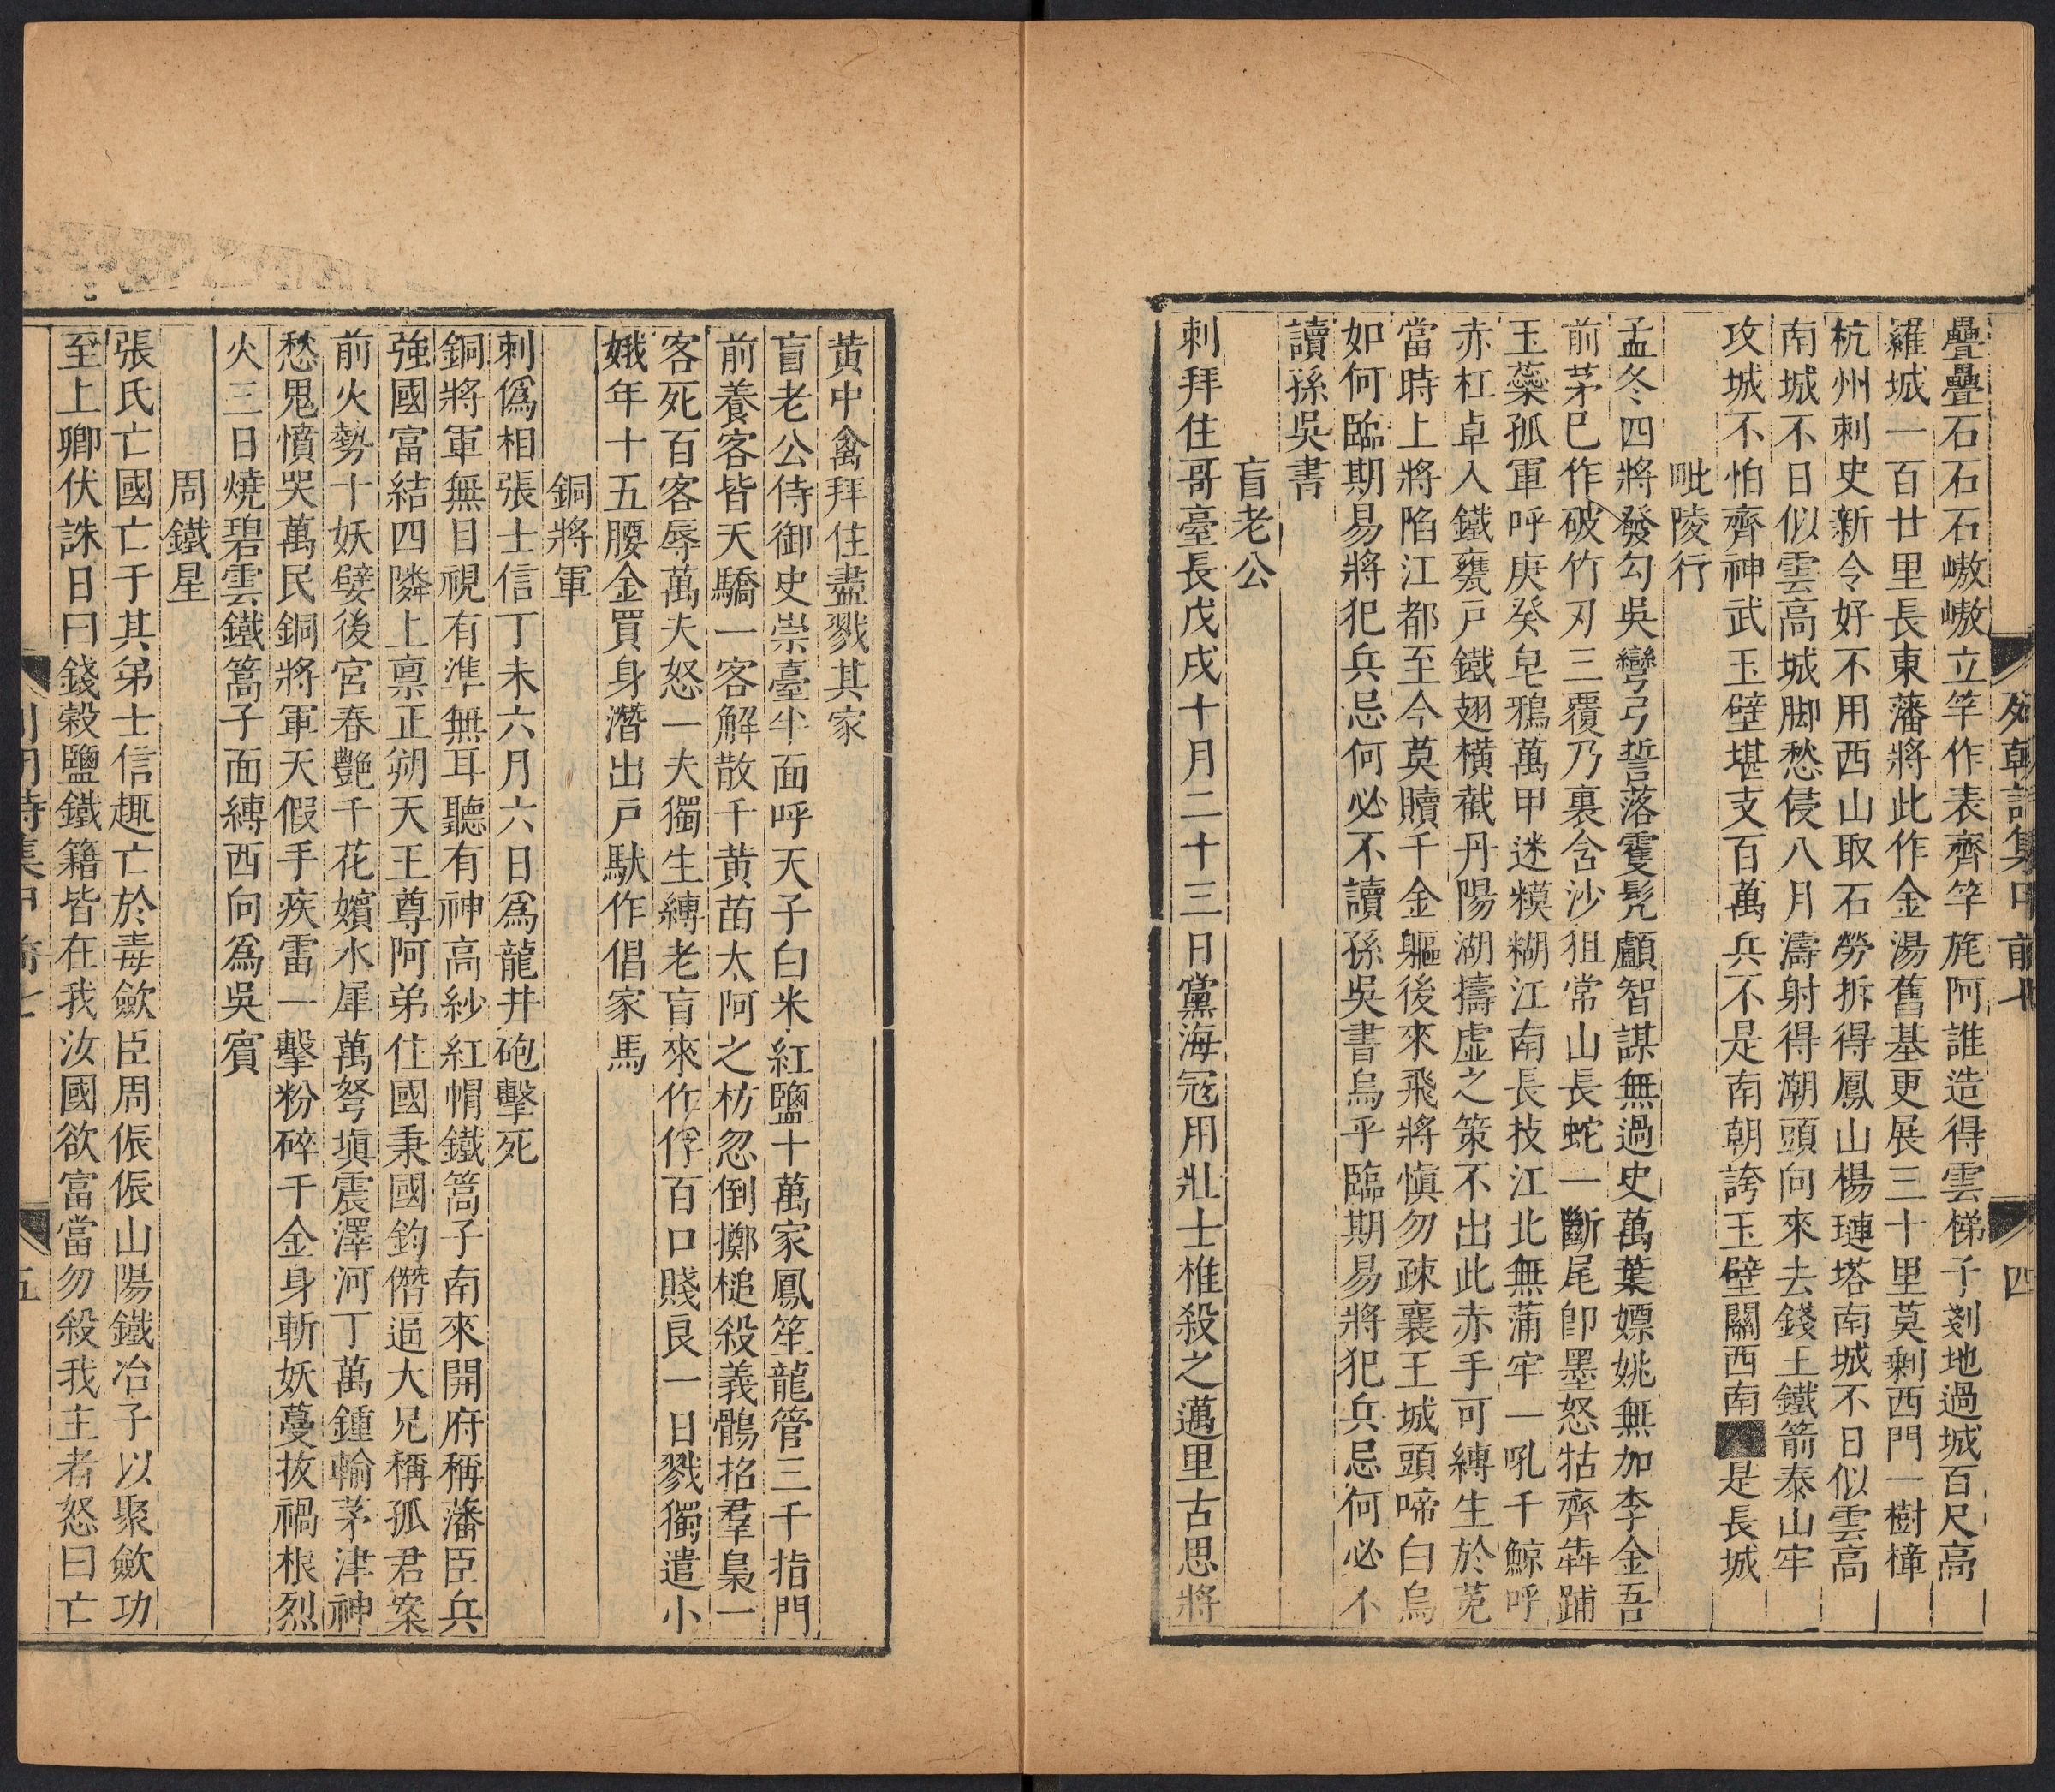 列朝詩集甲前七
四
疊疊石石石嶔嶔立竿作表齊竿旄阿誰造得雲梯子剗地過城百尺高
羅城一百廿里長東藩將此作金湯舊基更展三十里莫剩西門一樹樟
杭州刺史新令好不用西山取石勞拆得鳳山楊璉塔南城不日似雲高
南城不日似雲高城脚愁侵八月濤射得潮頭向來去錢王鐵箭泰山牢
攻城不怕齊神武玉壁堪支百萬兵不是南朝誇玉壁關西南是長城
毗陵行
孟冬四將發勾吳彎弓誓落雙髡顱智謀無過史萬葉嫖姚無加李金吾
前茅已作破竹刃三覆乃裹含沙狙常山長蛇一斷尾卽墨怒牯齊犇踊
玉蘂孤軍呼庚癸皂鴉萬甲迷糢糊江南長技江北無蒲牢一吼千鯨呼
赤杠卓入鐵甕戸鐵翅橫截丹陽湖擣虛之策不出此赤手可縛生於菟
當時上將陷江都至今莫贖千金軀後來飛將愼勿疎襄王城頭啼白烏
如何臨期易將犯兵忌何必不讀孫吳書烏乎臨期易將犯兵忌何必不
讀孫吳書
盲老公
刺拜住哥臺長戊戌十月二十三日黨海寇用壯士椎殺之邁里古思將
黃中禽拜住盡戮其家
盲老公侍御史崇臺半面呼天子白米紅鹽十萬家鳳笙龍管三千指門
前養客皆天驕一客解散千黃苗太阿之枋忽倒擲槌殺義鶻招羣梟一
客死百客辱萬夫怒一夫獨生縛老盲來作俘百口賤良一日戮獨遣小
娥年十五腰金買身潛出戸馱作倡家馬
銅將軍
刺僞相張士信丁未六月六日爲龍井砲擊死
銅將軍無目視有準無耳聽有神高紗紅帽鐵篙子南來開府稱藩臣兵
強國富結四隣上禀正朔天王尊阿弟住國秉國鈞僭逼大兄稱孤君案
前火勢十妖嬖後宮春艶千花嬪水犀萬弩塡震澤河丁萬鍾輸茅津神
愁鬼憤哭萬民銅將軍天假手疾雷一擊粉碎千金身斬妖蔓拔禍根烈
火三日燒碧雲鐵篙子面縛西向爲吳賓
周鐵星
張氏亡國亡于其弟士信趣亡於毒歛臣周侲侲山陽鐵冶子以聚歛功
至上卿伏誅日曰錢榖鹽鐵籍皆在我汝國欲富當勿殺我主者怒曰亡
列朝詩集甲前七
五